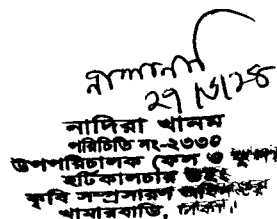 ২৭/৩/২৪
নাদিরা খানম
পরিচিতি নং-২৩৩০
উপপরিচালক (ফল ও
হর্টিকালচার উইং
কৃষি সম্প্রসারণ
খামারবাড়ি,